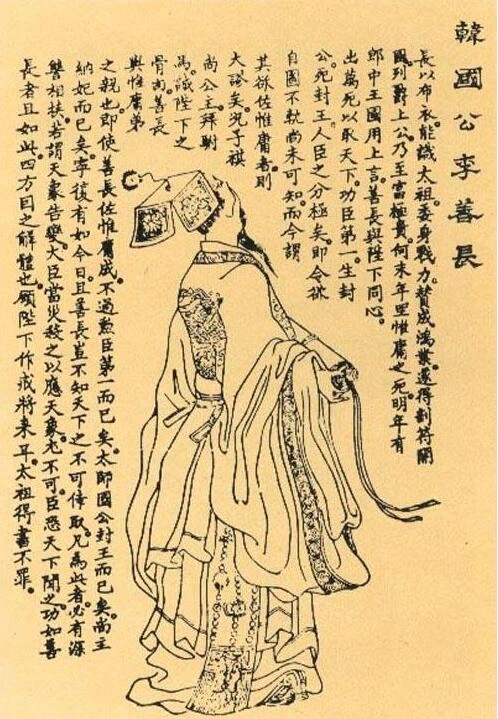 韓國公李善長
長以布衣能識太祖。委身戮力。贊成鴻業。遂得剖符開
國。列爵上公。乃至富極貴。何末年里惟庸之死。明年有
郎中王國用上言。善長與陛下同心。
出萬死以取天下。功臣第一。生封
公。死封王。人臣之分極矣。即令欲
自圖不軌。尚未可知。而今謂
其欲佐惟庸者。則
大謬矣。兒子祺
尚公主。拜駙
馬。誠陛下之
骨肉。善長
與惟庸第
之親也。即使善長佐惟庸成。不過勲臣第一而已矣。太師國公封王而已矣。尚主
納妃而已矣。寧復有加今日。且善長豈不知天下之不可倖取。凡為此者。必有深
讐相挾。若謂天象告變。大臣當災。殺之以應天象。尤不可。臣恐天下聞之。功如善
長者且如此。四方因之解體也。願陛下作戒將來耳。太祖得書不罪。